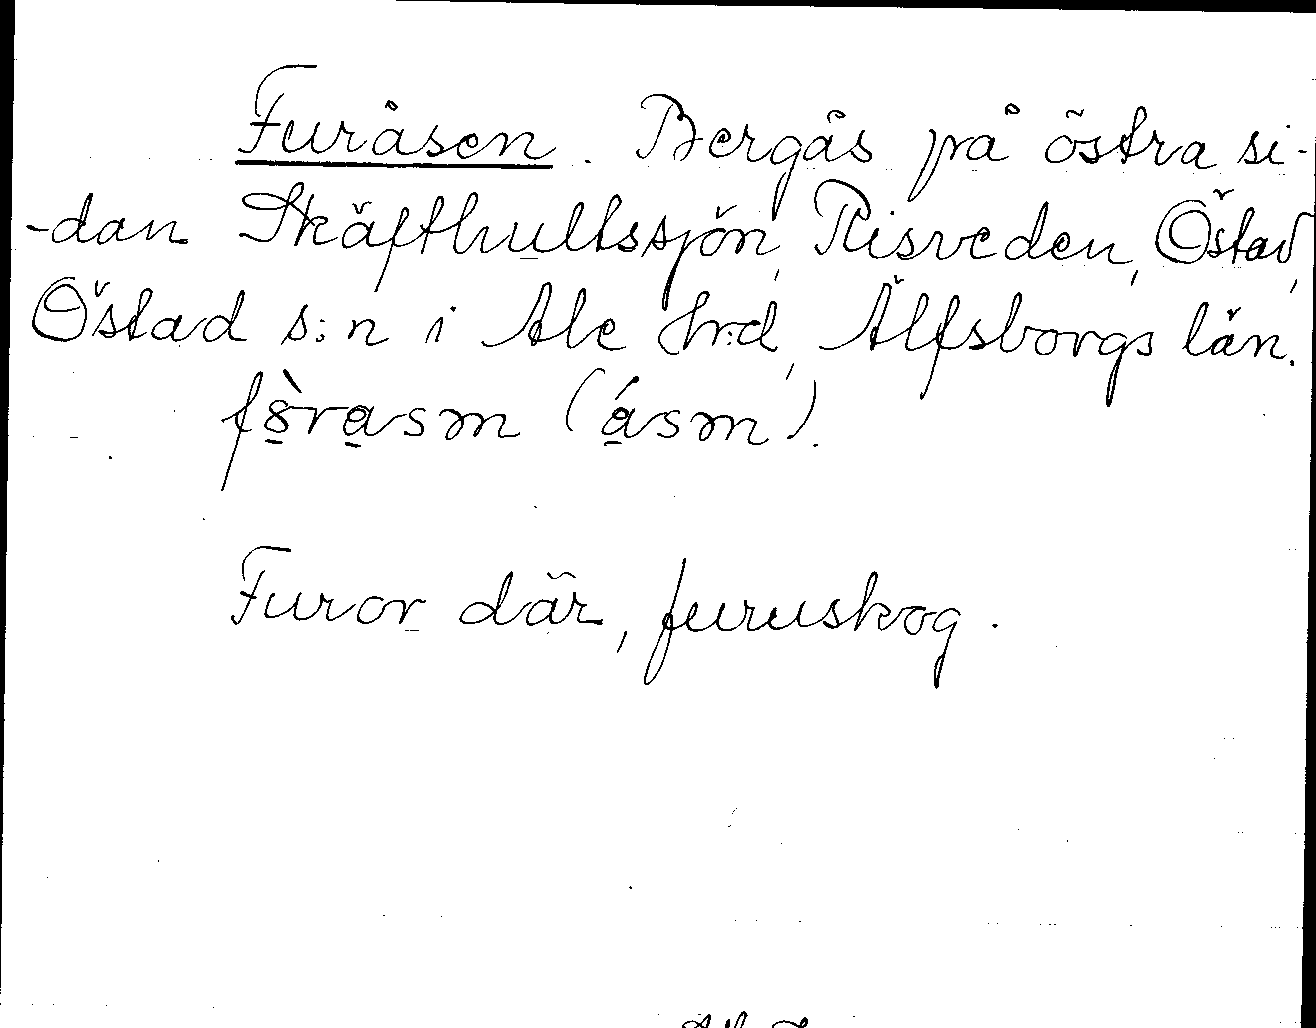 Furåsen. Bergås på östra si-
-dan Skäfthultssjön, Risveden, Östad,
Östad s:n i Ale hrd, Älfsborgs län.
fòrasm (ásm).
Furor där, furuskog.